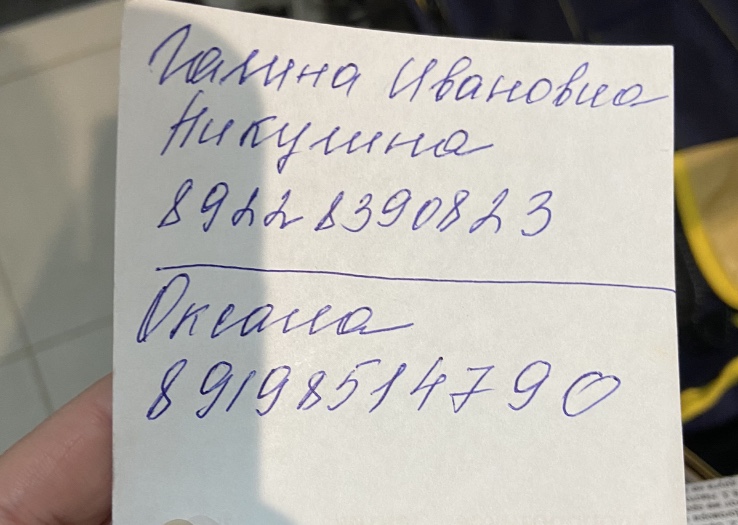 Галина Ивановна
Никулина
8922 8390823
Оксана
89198514790